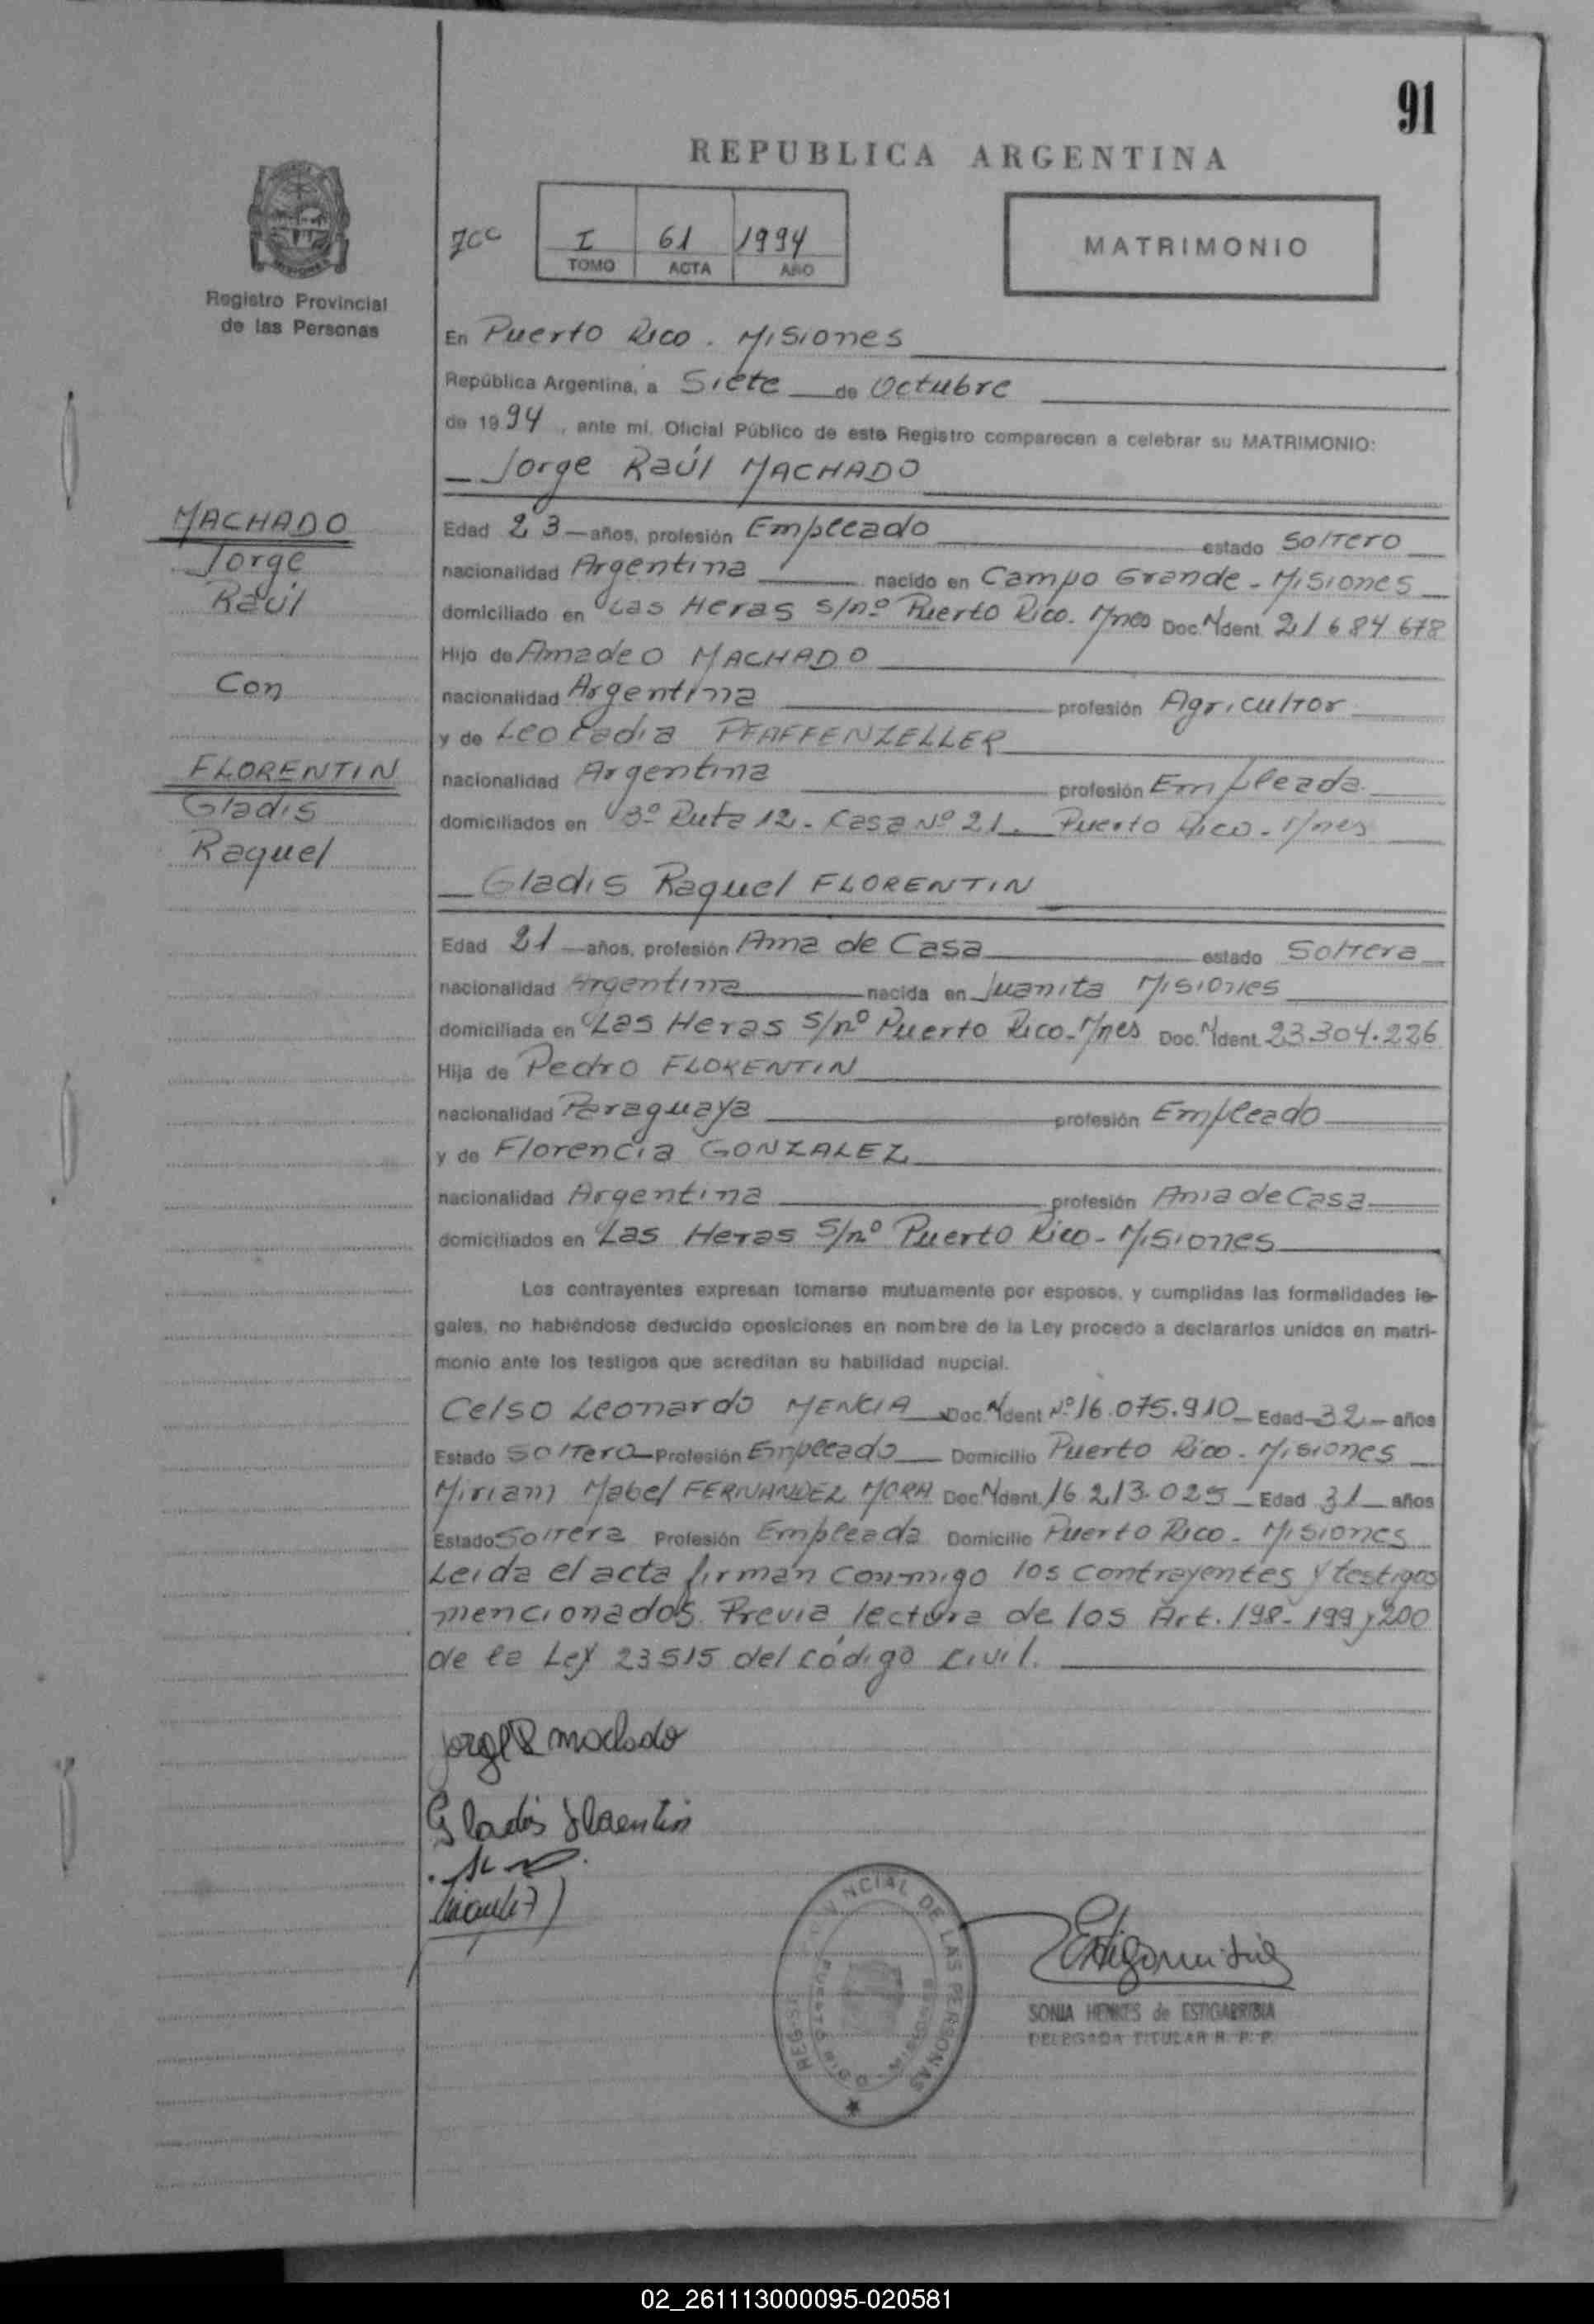 91
REPUBLICA ARGENTINA
I 61 1994
TOMO ACTA AÑO
MATRIMONIO
Registro Provincial
de las Personas
En Puerto Rico. Misiones
República Argentina, a Siete de Octubre
de 1994, ante mí, Oficial Público de este Registro comparecen a celebrar su MATRIMONIO:
Jorge Raúl MACHADO
MACHADO
Jorge
Raúl
Con
FLORENTIN
Gladis
Raquel
Edad 23 años, profesión Empleado estado Soltero
nacionalidad Argentina nacido en Campo Grande - Misiones
domiciliado en Las Heras S/nº Puerto Rico. Mnes Doc. N Ident. 21684678
Hijo de Amadeo MACHADO
nacionalidad Argentina profesión Agricultor
y de Leocadia PFAFFENZELLER
nacionalidad Argentina profesión Empleada
domiciliados en Bº Ruta 12 - Casa Nº 21. Puerto Rico - Mnes
Gladis Raquel FLORENTIN
Edad 21 años, profesión Ama de Casa estado Soltera
nacionalidad Argentina nacida en Juanita Misiones
domiciliada en Las Heras S/nº Puerto Rico - Mnes Doc. N Ident. 23.304.226
Hija de Pedro FLORENTIN
nacionalidad Paraguaya profesión Empleado
y de Florencia GONZALEZ
nacionalidad Argentina profesión Ama de Casa
domiciliados en Las Heras S/nº Puerto Rico - Misiones
Los contrayentes expresan tomarse mutuamente por esposos, y cumplidas las formalidades le-
gales, no habiéndose deducido oposiciones en nombre de la Ley procedo a declararlos unidos en matri-
monio ante los testigos que acreditan su habilidad nupcial.
Celso Leonardo MENCIA Doc. N Ident. Nº 16.075.910 Edad 32 años
Estado Soltero Profesión Empleado Domicilio Puerto Rico - Misiones
Miriam Mabel FERNANDEZ MORA Doc. N Ident. 16.213.025 Edad 31 años
Estado Soltera Profesión Empleada Domicilio Puerto Rico - Misiones
Leida el acta firman conmigo los contrayentes y testigos
mencionados. Previa lectura de los Art. 198 - 199 y 200
de la Ley 23515 del Código Civil.
Jorge R machado
Gladis Florentin
REGISTRO PROVINCIAL DE LAS PERSONAS
PUERTO RICO MISIONES
SONIA HENKES de ESTIGARRIBIA
DELEGADA TITULAR R. P. P.
02_261113000095-020581